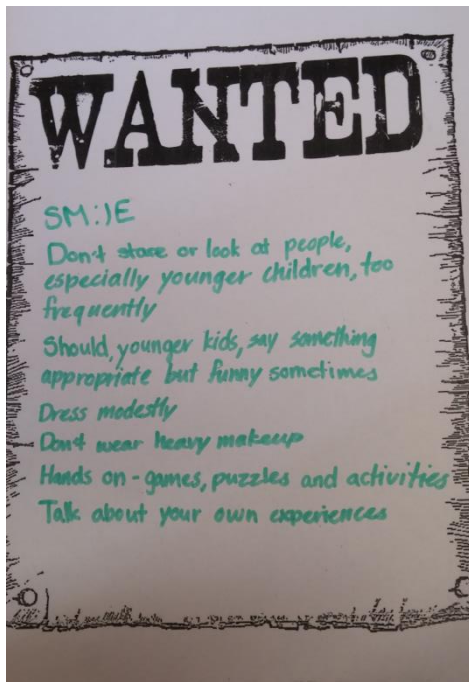 WANTED
SM:)E
Don't stare or look at people,
especially younger children, too
frequently
Should, younger kids, say something
appropriate but funny sometimes
Dress modestly
Don't wear heavy makeup
Hands on - games, puzzles and activities
Talk about your own experiences